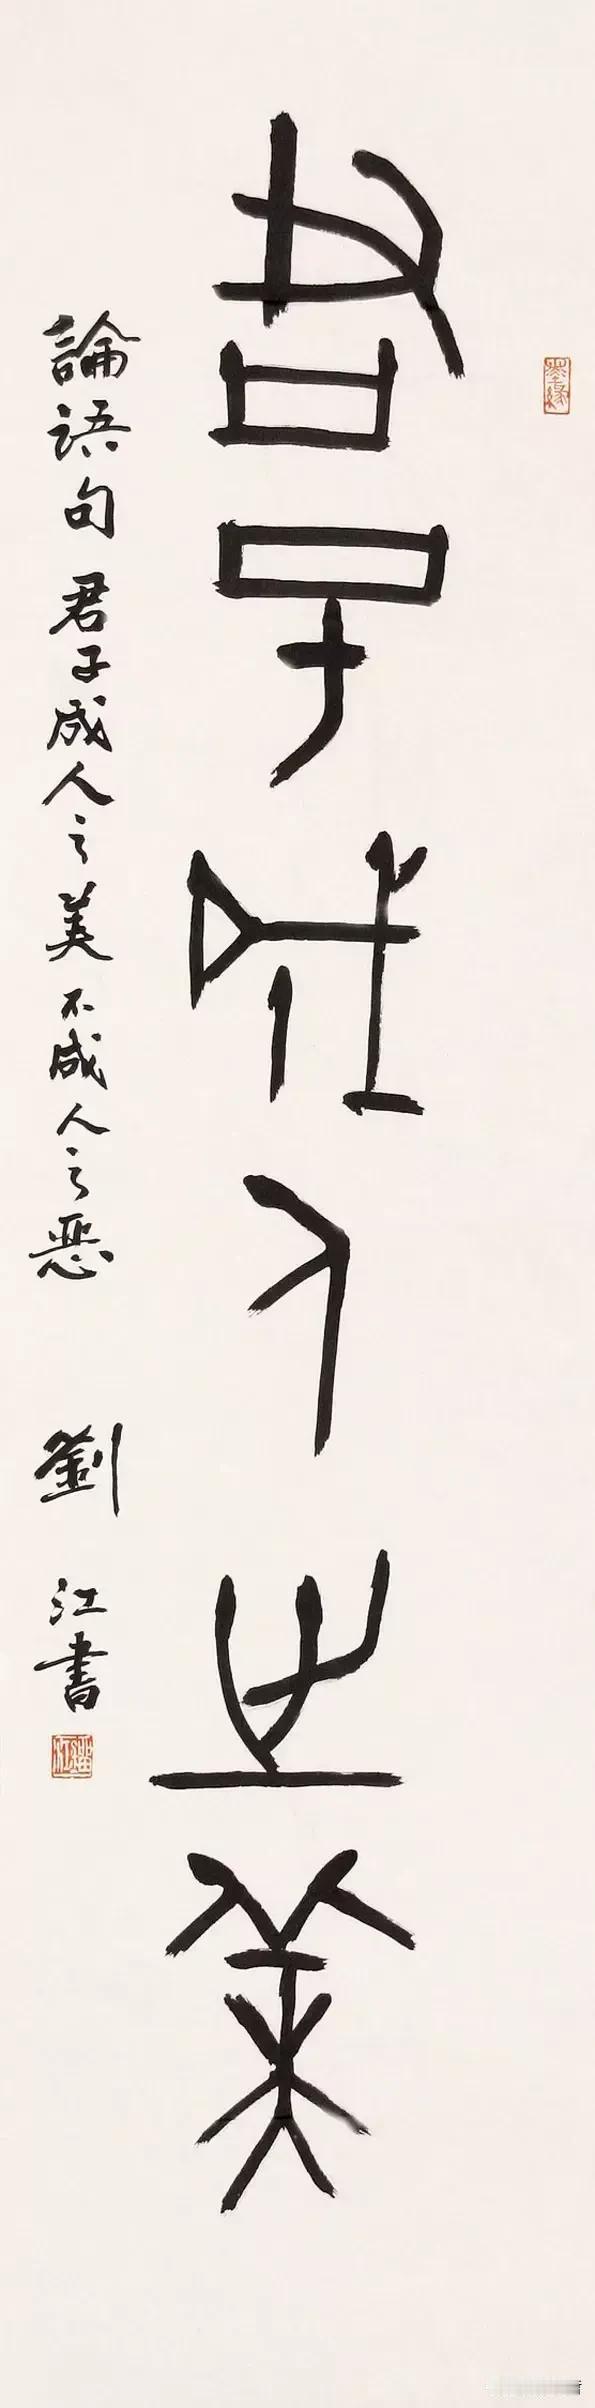 君子成人之美
論語句 君子成人之美不成人之惡
劉江書